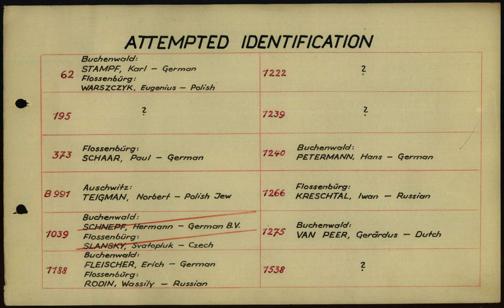 ATTEMPTED IDENTIFICATION
62
Buchenwald:
STAMPF, Karl – German
Flossenbürg:
WARSZCZYK, Eugenius – Polish
7222
?
195
?
7239
?
373
Flossenbürg:
SCHAAR, Paul – German
7240
Buchenwald:
PETERMANN, Hans – German
B 991
Auschwitz:
TEIGMAN, Norbert – Polish Jew
7266
Flossenbürg:
KRESCHTAL, Iwan – Russian
1039
Buchenwald:
SCHNEPF, Hermann – German B.V.
Flossenbürg:
SLANSKY, Svatopluk – Czech
7275
Buchenwald:
VAN PEER, Gerárdus – Dutch
7188
Buchenwald:
FLEISCHER, Erich – German
Flossenbürg:
RODIN, Wassily – Russian
7538
?